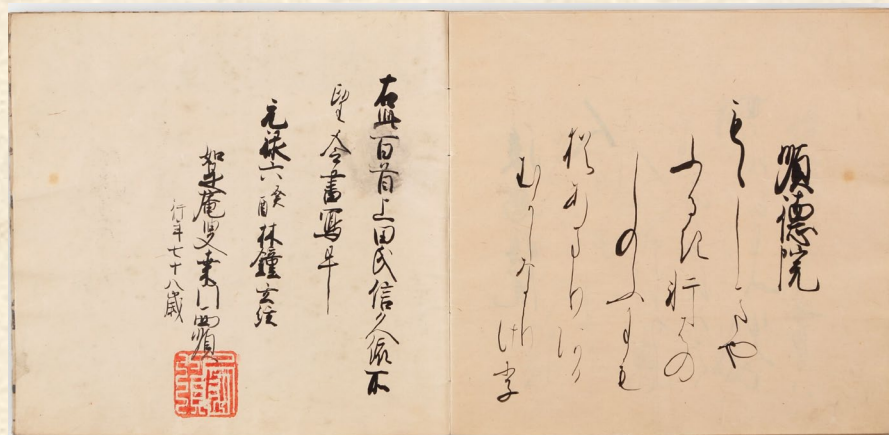 順徳院
もゝしきや
ふるき軒はの
しのふにも
猶あまりある
むかしなり
け李
右此百首上田氏信久依所
望令書寫畢
元禄六癸酉林鐘
如是庵叟桑門西順
行年七十八歳